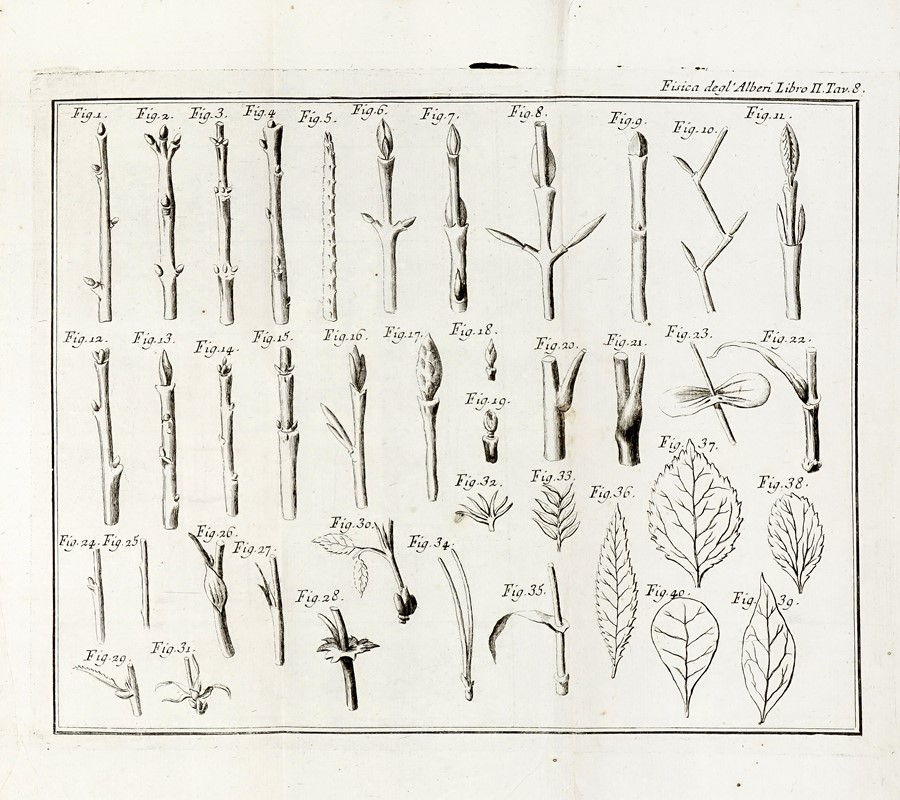 Fisica degl'Alberi Libro II. Tav. 8.
Fig. 1. Fig. 2. Fig. 3. Fig. 4 Fig. 5. Fig. 6. Fig. 7. Fig. 8. Fig. 9. Fig. 10. Fig. 11.
Fig. 12. Fig. 13. Fig. 14. Fig. 15. Fig. 16. Fig. 17. Fig. 18. Fig. 20. Fig. 21. Fig. 23. Fig. 22.
Fig. 19.
Fig. 32. Fig. 33 Fig. 36. Fig. 37. Fig. 38.
Fig. 24. Fig. 25 Fig. 26. Fig. 27. Fig. 30. Fig. 34.
Fig. 28. Fig. 35. Fig. 40. Fig. 39.
Fig. 29. Fig. 31.